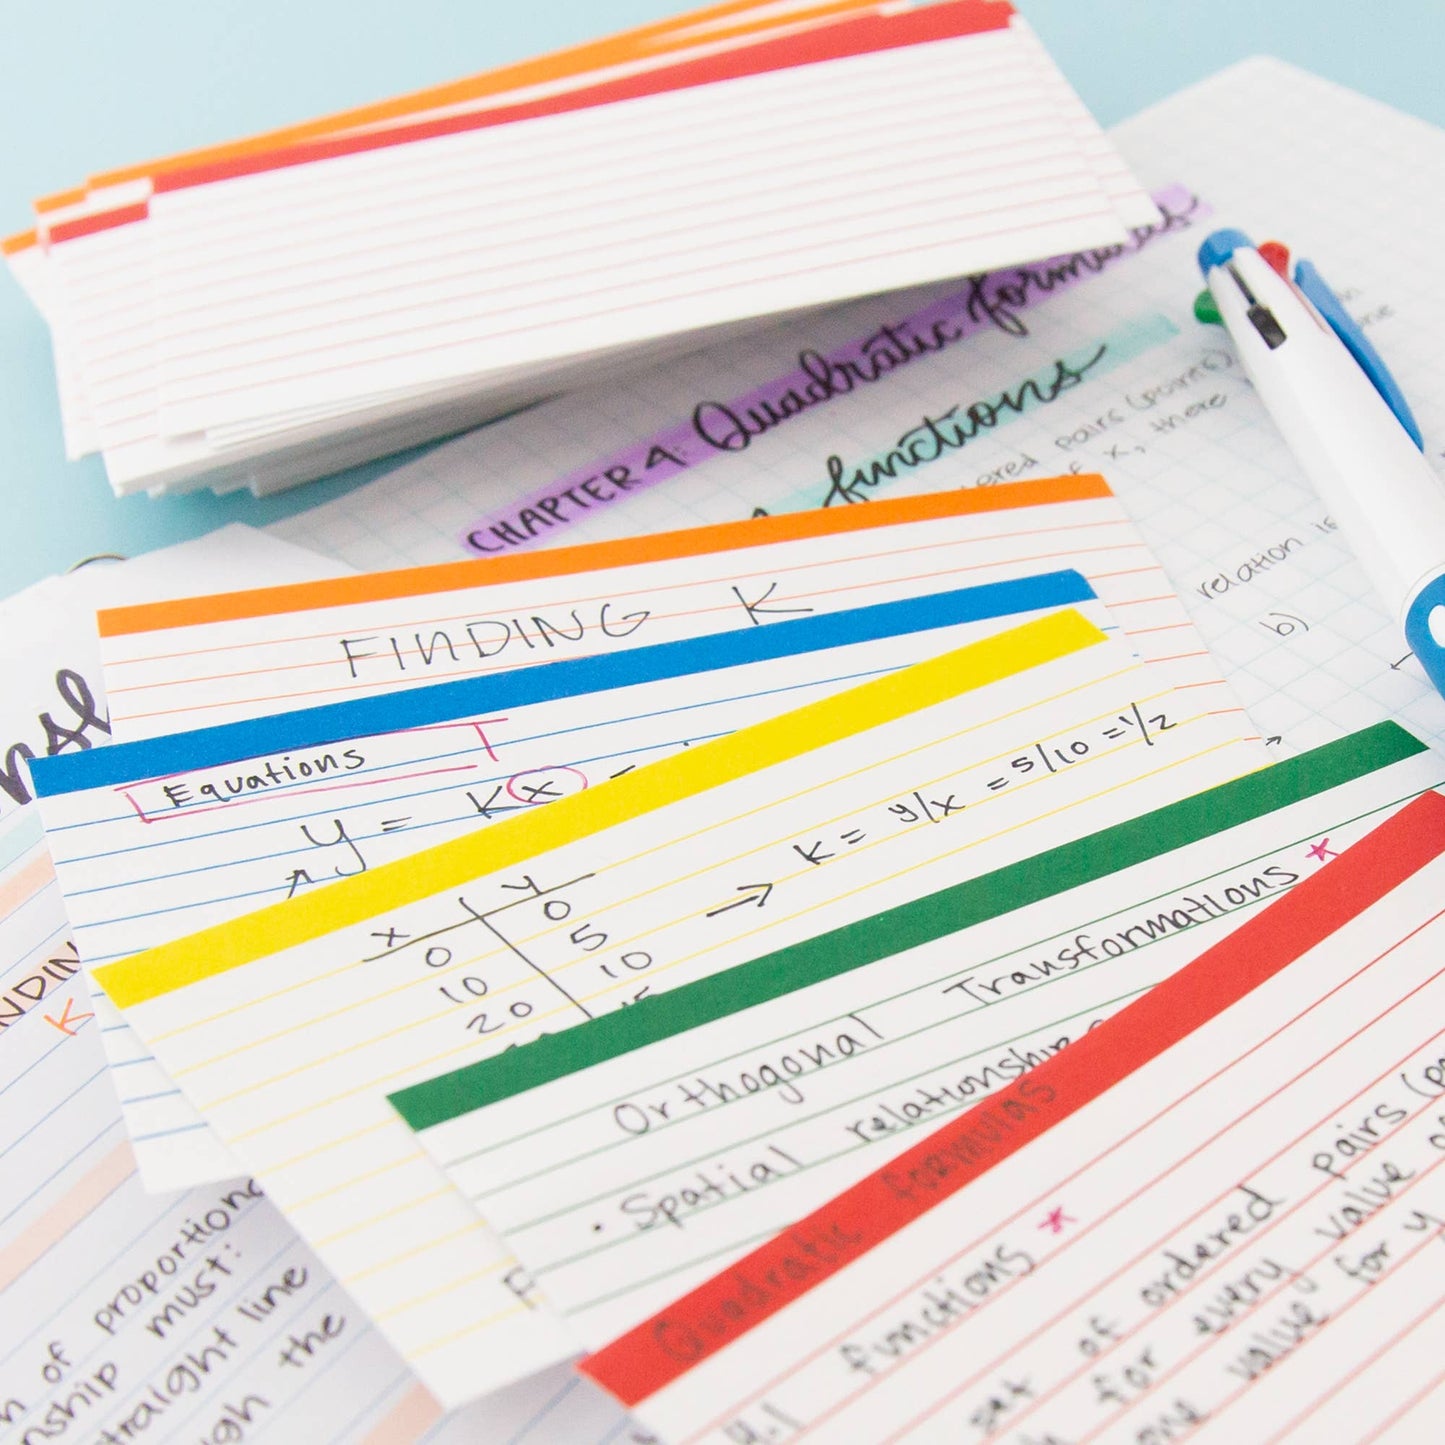 CHAPTER 4: Quadratic formulas
functions
ordered pairs (points)
of x, there
relation is
b)
FINDING K
Equations
y = Kx
x y
0 0
10 5
20 10
15
→ K = y/x = 5/10 = 1/2
Orthogonal Transformations *
• Spatial relationship
Quadratic formulas
4.1 functions *
set of ordered pairs
for every value of
one value for y
K
of proportional
must:
straight line
the